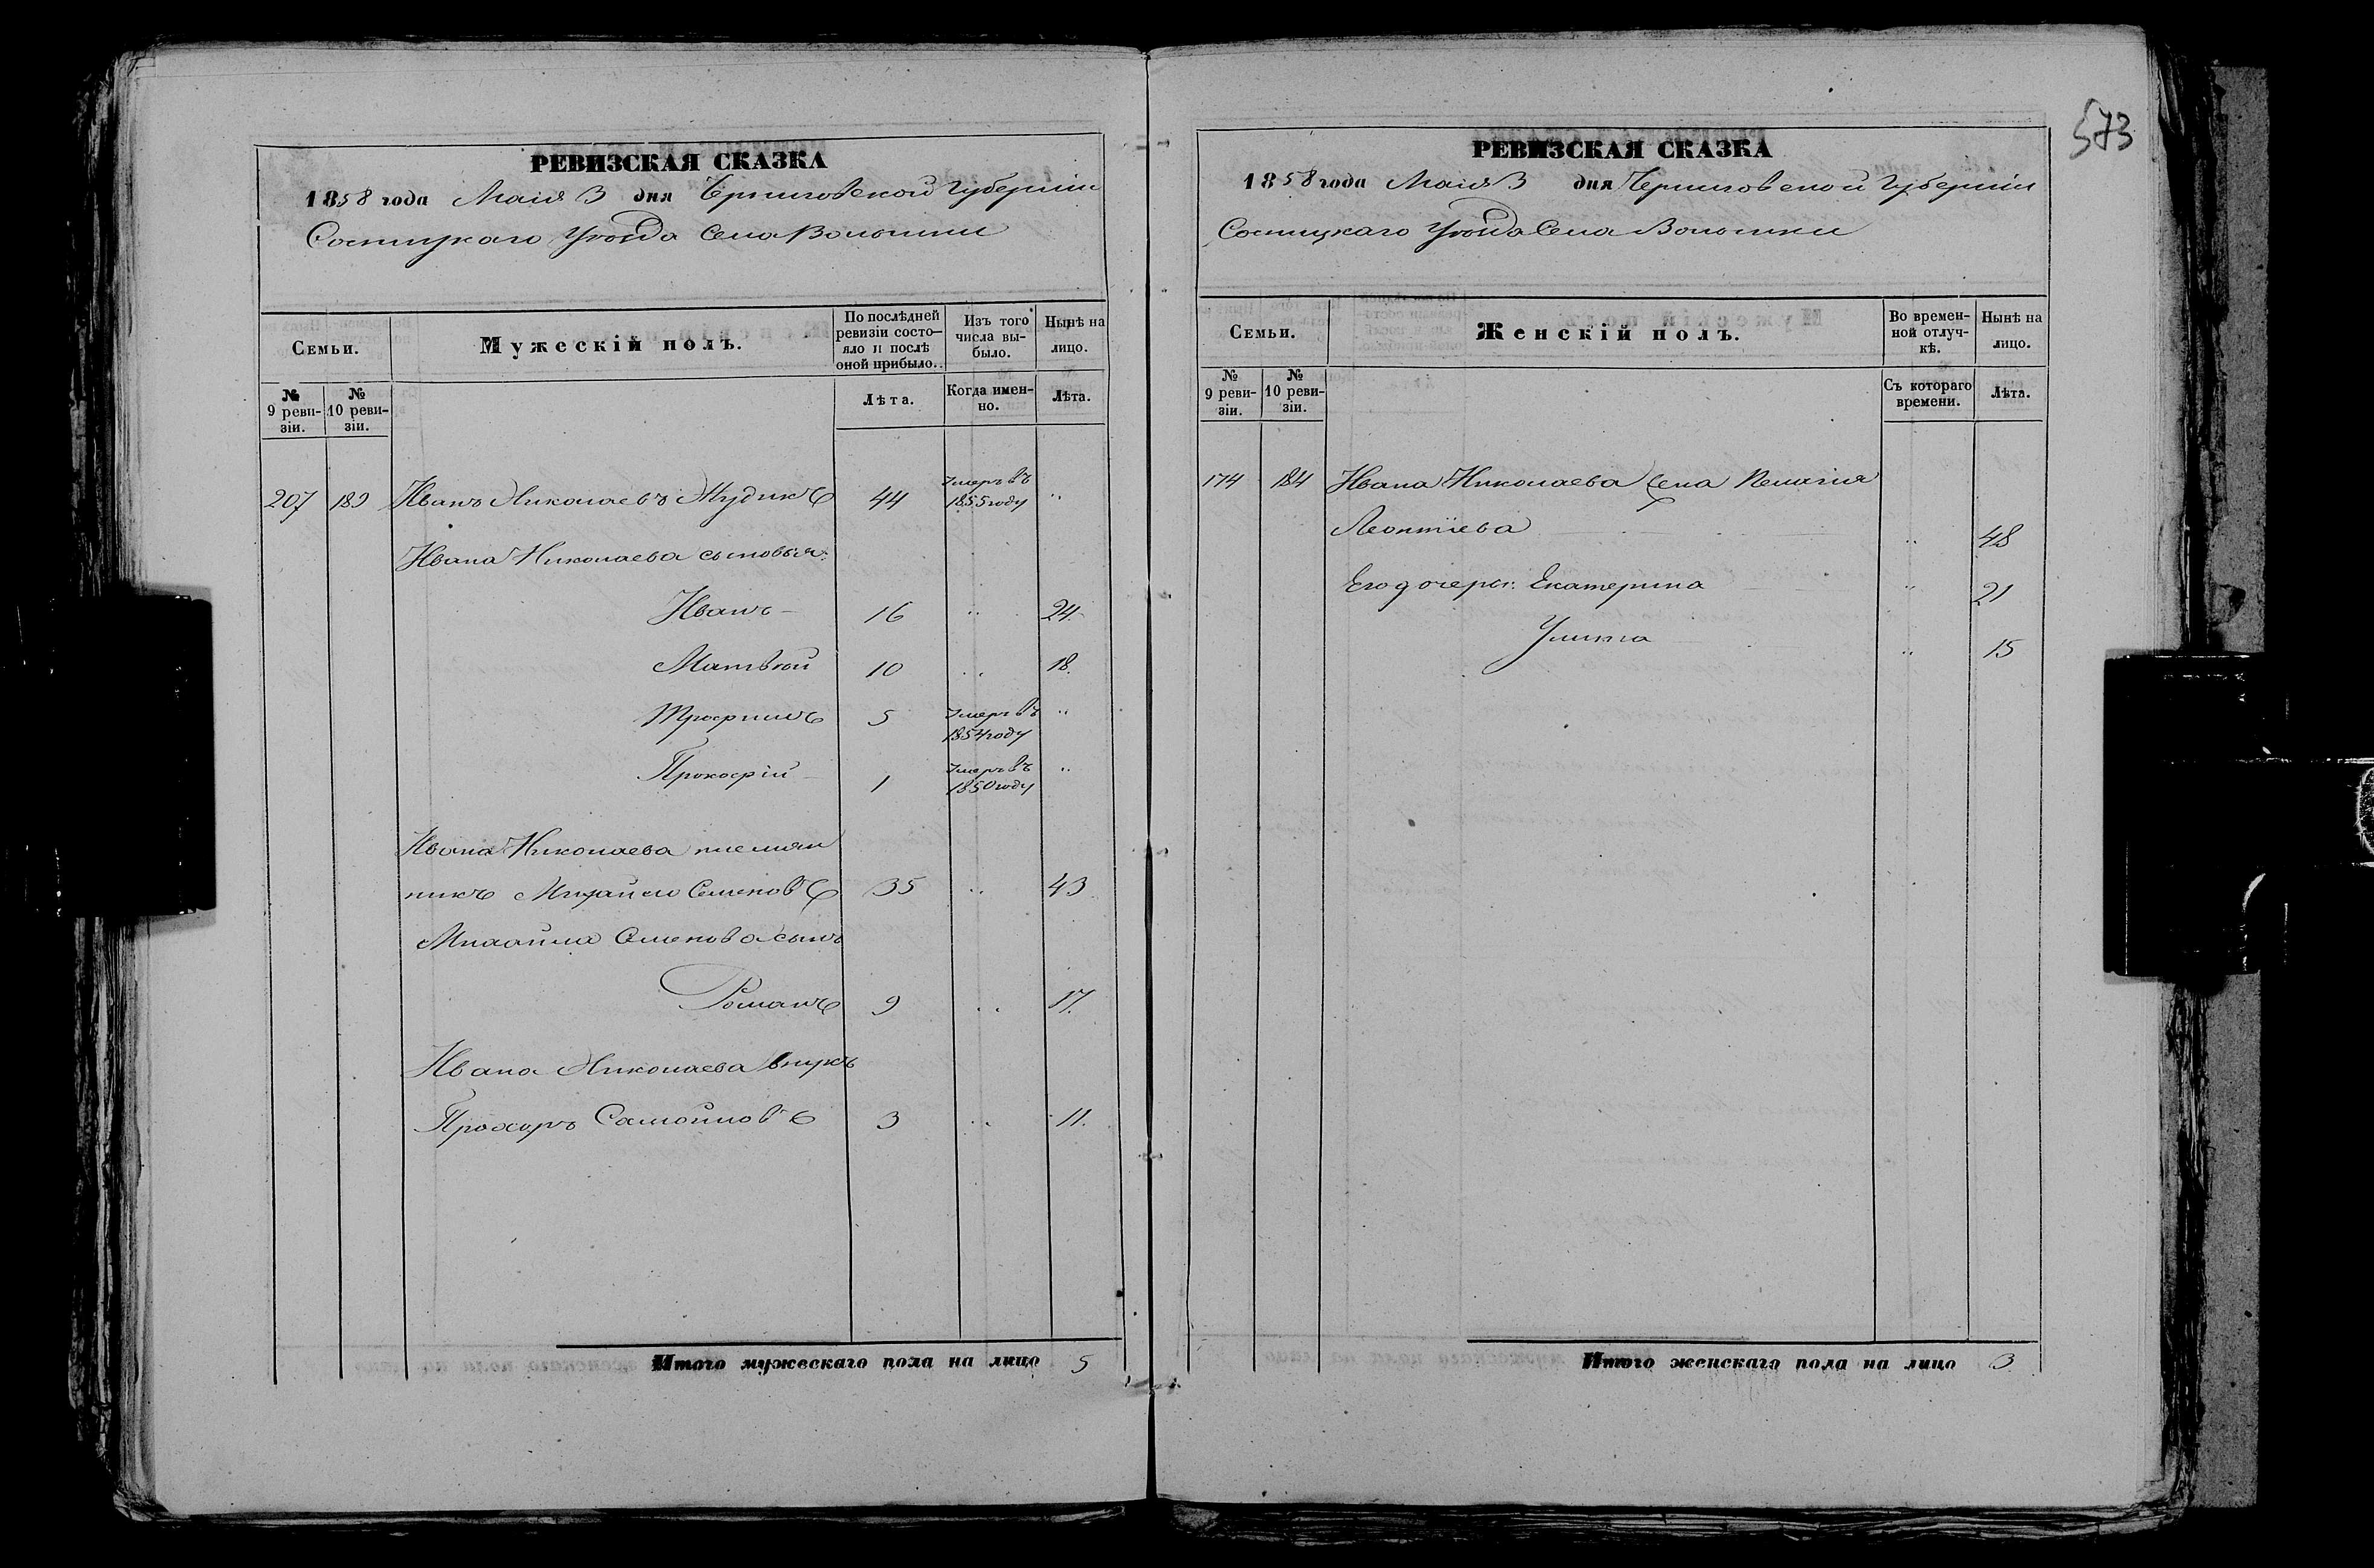 573
РЕВИЗСКАЯ СКАЗКА
1858 года Маія 3 дня Черниговской Губерніи
Сосницкаго Уѣзда Села Волынки
Семьи.
Мужескій полъ.
По послѣдней ревизіи состо-
яло и послѣ оной прибыло.
Изъ того числа вы-
было.
Нынѣ на лицо.
№ 9 реви-
зіи.
№ 10 реви-
зіи.
Лѣта.
Когда имен-
но.
Лѣта.
207 189 Иванъ Николаевъ 44 Умеръ въ 1855 году "
Ивана Николаева сыновья:
Иванъ – 16 " 24.
Матвѣй 10 " 18.
Трофимъ 5 Умеръ въ 1854 году "
Прокофій – 1 Умеръ въ 1850 году "
Ивана Николаева племян
никъ Михайло Семеновъ 35 " 43
Михайла Семенова сынъ
Романъ 9 " 17.
Ивана Николаева внукъ
Прохоръ Самойловъ 3 " 11.
Итого мужескаго пола на лицо 5
РЕВИЗСКАЯ СКАЗКА
1858 года Маія 3 дня Черниговской Губерніи
Сосницкаго Уѣзда Села Волынки
Семьи.
Женскій полъ.
Во времен-
ной отлуч-
кѣ.
Нынѣ на лицо.
№ 9 реви-
зіи.
№ 10 реви-
зіи.
Съ котораго времени.
Лѣта.
174 184 Ивана Николаева жена Пелагія
Леонтіева " 48
Его дочери: Екатерина " 21
Улита " 15
Итого женскаго пола на лицо 3